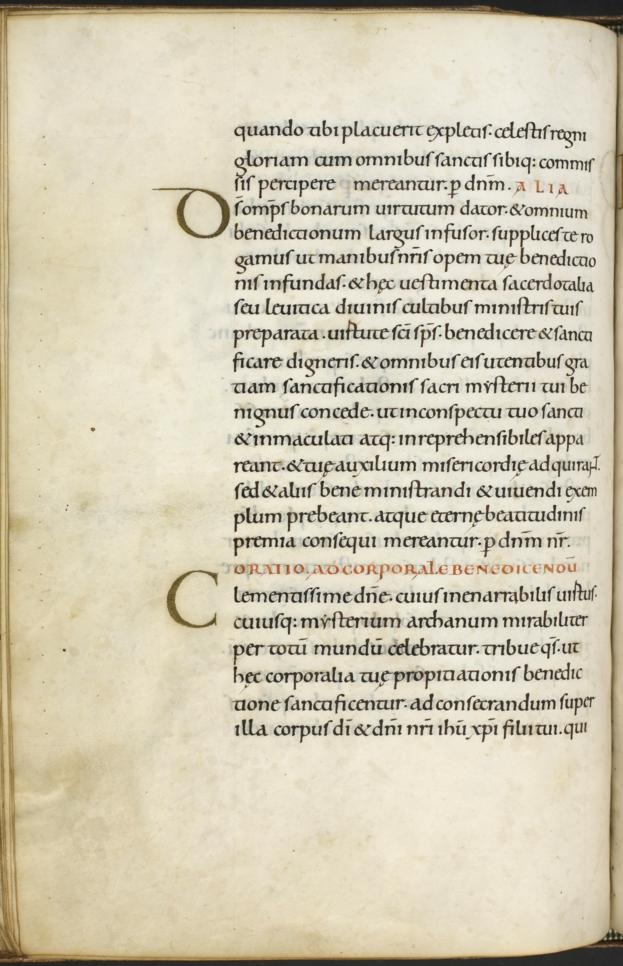 quando tibi placuerit expletis· celestis regni
gloriam cum omnibus sanctis sibiq: commis
sis percipere mereantur· p̱ dnm̄. ALIA
Ds omp̄s bonarum virtutum dator· &omnium
benedictionum largus infusor· supplices te ro
gamus ut manibus nr̄is opem tuę benedictio
nis infundas· & hęc vestimenta sacerdotalia
seu levitica divinis cultibus ministris tuis
preparata. virtute sc̄i sp̄s· benedicere & sancti
ficare digneris· & omnibus eis utentibus gra
tiam sanctificationis sacri mẏsterii tui be
nignus concede· ut in conspectu tuo sancti
& inmaculati atq: inreprehensibiles appa
reant· & tuę auxilium misericordię adquirant·
sed & aliis bene ministrandi & vivendi exem
plum prebeant. atque eternę beatitudinis
premia consequi mereantur· p̱ dnm̄ nr̄.
ORATIO. AD CORPORALE BENEDICENDŪ
Clementissime dn̄e· cuius inenarrabilis virtus·
cuiusq: mẏsterium archanum mirabiliter
per totū mundū celebratur· tribue qs̄· ut
hęc corporalia tuę propitiationis benedic
tione sanctificentur· ad consecrandum super
illa corpus dī & dn̄i nr̄i ihū xp̄i filii tui. qui